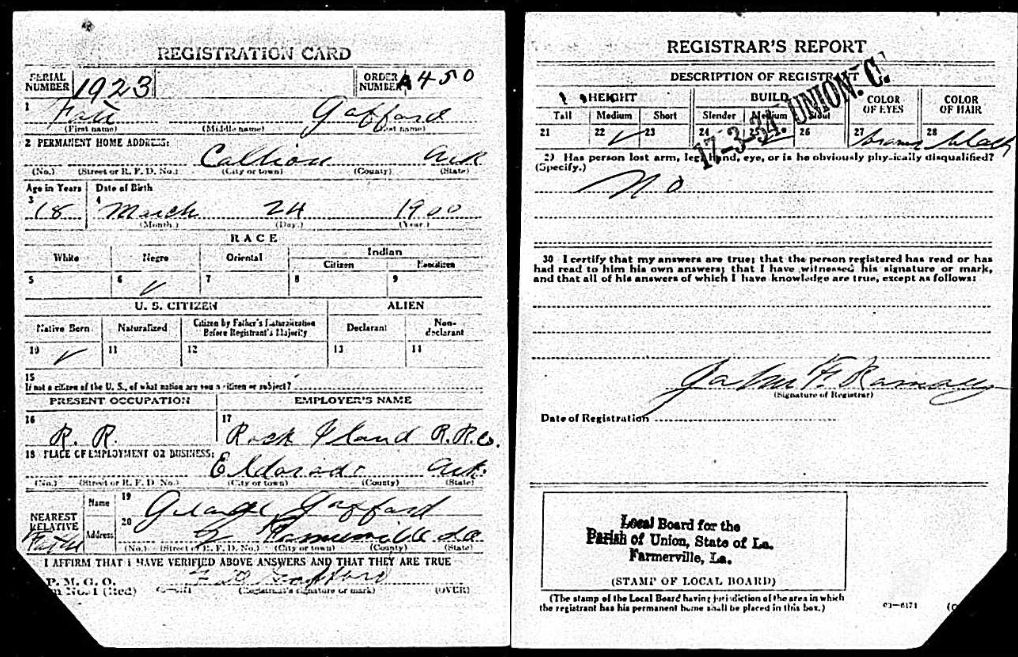 REGISTRATION CARD
SERIAL NUMBER 1923 ORDER NUMBER A450
1 Gafford
(First name) (Middle name) (Last name)
2 PERMANENT HOME ADDRESS:
Callion Ark
(No.) (Street or R. F. D. No.) (City or town) (County) (State)
Age in Years Date of Birth
3 18 4 March 24 1900
(Month) (Day) (Year)
RACE
White Negro Oriental Indian
Citizen Noncitizen
5 6 ✓ 7 8 9
U. S. CITIZEN ALIEN
Native Born Naturalized Citizen by Father's Naturalization Before Registrant's Majority Declarant Non-declarant
10 ✓ 11 12 13 14
15
If not a citizen of the U. S., of what nation are you a citizen or subject?
PRESENT OCCUPATION EMPLOYER'S NAME
16 R. R. 17 Rock Island R.R.Co.
18 PLACE OF EMPLOYMENT OR BUSINESS:
Eldorado Ark
(No.) (Street or R. F. D. No.) (City or town) (County) (State)
NEAREST RELATIVE Name 19 George Gafford
Father Address 20 Farmerville La
(No.) (Street or R. F. D. No.) (City or town) (County) (State)
I AFFIRM THAT I HAVE VERIFIED ABOVE ANSWERS AND THAT THEY ARE TRUE
P. M. G. O. Gafford
No. 1 (Red) (Registrant's signature or mark) (OVER)
REGISTRAR'S REPORT
17-3-34. UNION. C.
DESCRIPTION OF REGISTRANT
HEIGHT BUILD COLOR OF EYES COLOR OF HAIR
Tall Medium Short Slender Medium Stout
21 22 ✓ 23 24 25 26 27 Brown 28 black
29 Has person lost arm, leg, hand, eye, or is he obviously physically disqualified?
(Specify.)
No
30 I certify that my answers are true; that the person registered has read or has
had read to him his own answers; that I have witnessed his signature or mark,
and that all of his answers of which I have knowledge are true, except as follows:
F. Ramsey
(Signature of Registrar)
Date of Registration
Local Board for the
Parish of Union, State of La.
Farmerville, La.
(STAMP OF LOCAL BOARD)
(The stamp of the Local Board having jurisdiction of the area in which
the registrant has his permanent home shall be placed in this box.)
03—6171